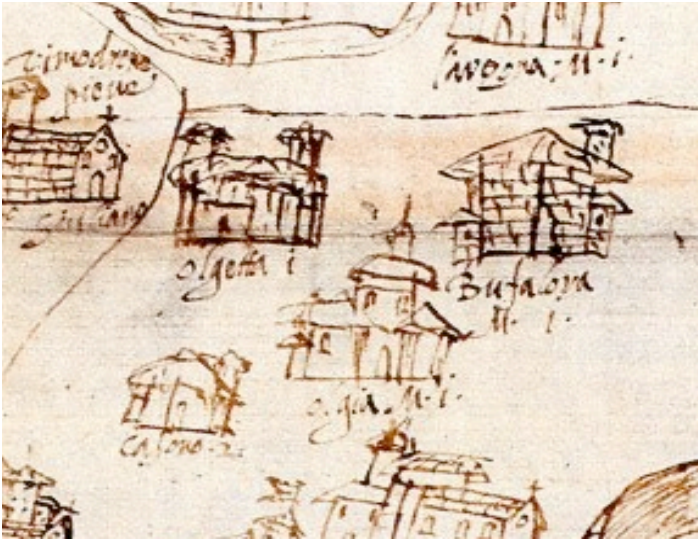 Cavogna. M. i.
Vimodrone
pieve
S. Giuliano
Olgetta i
Bufalora
M. i.
olgia. M. i.
Casono.